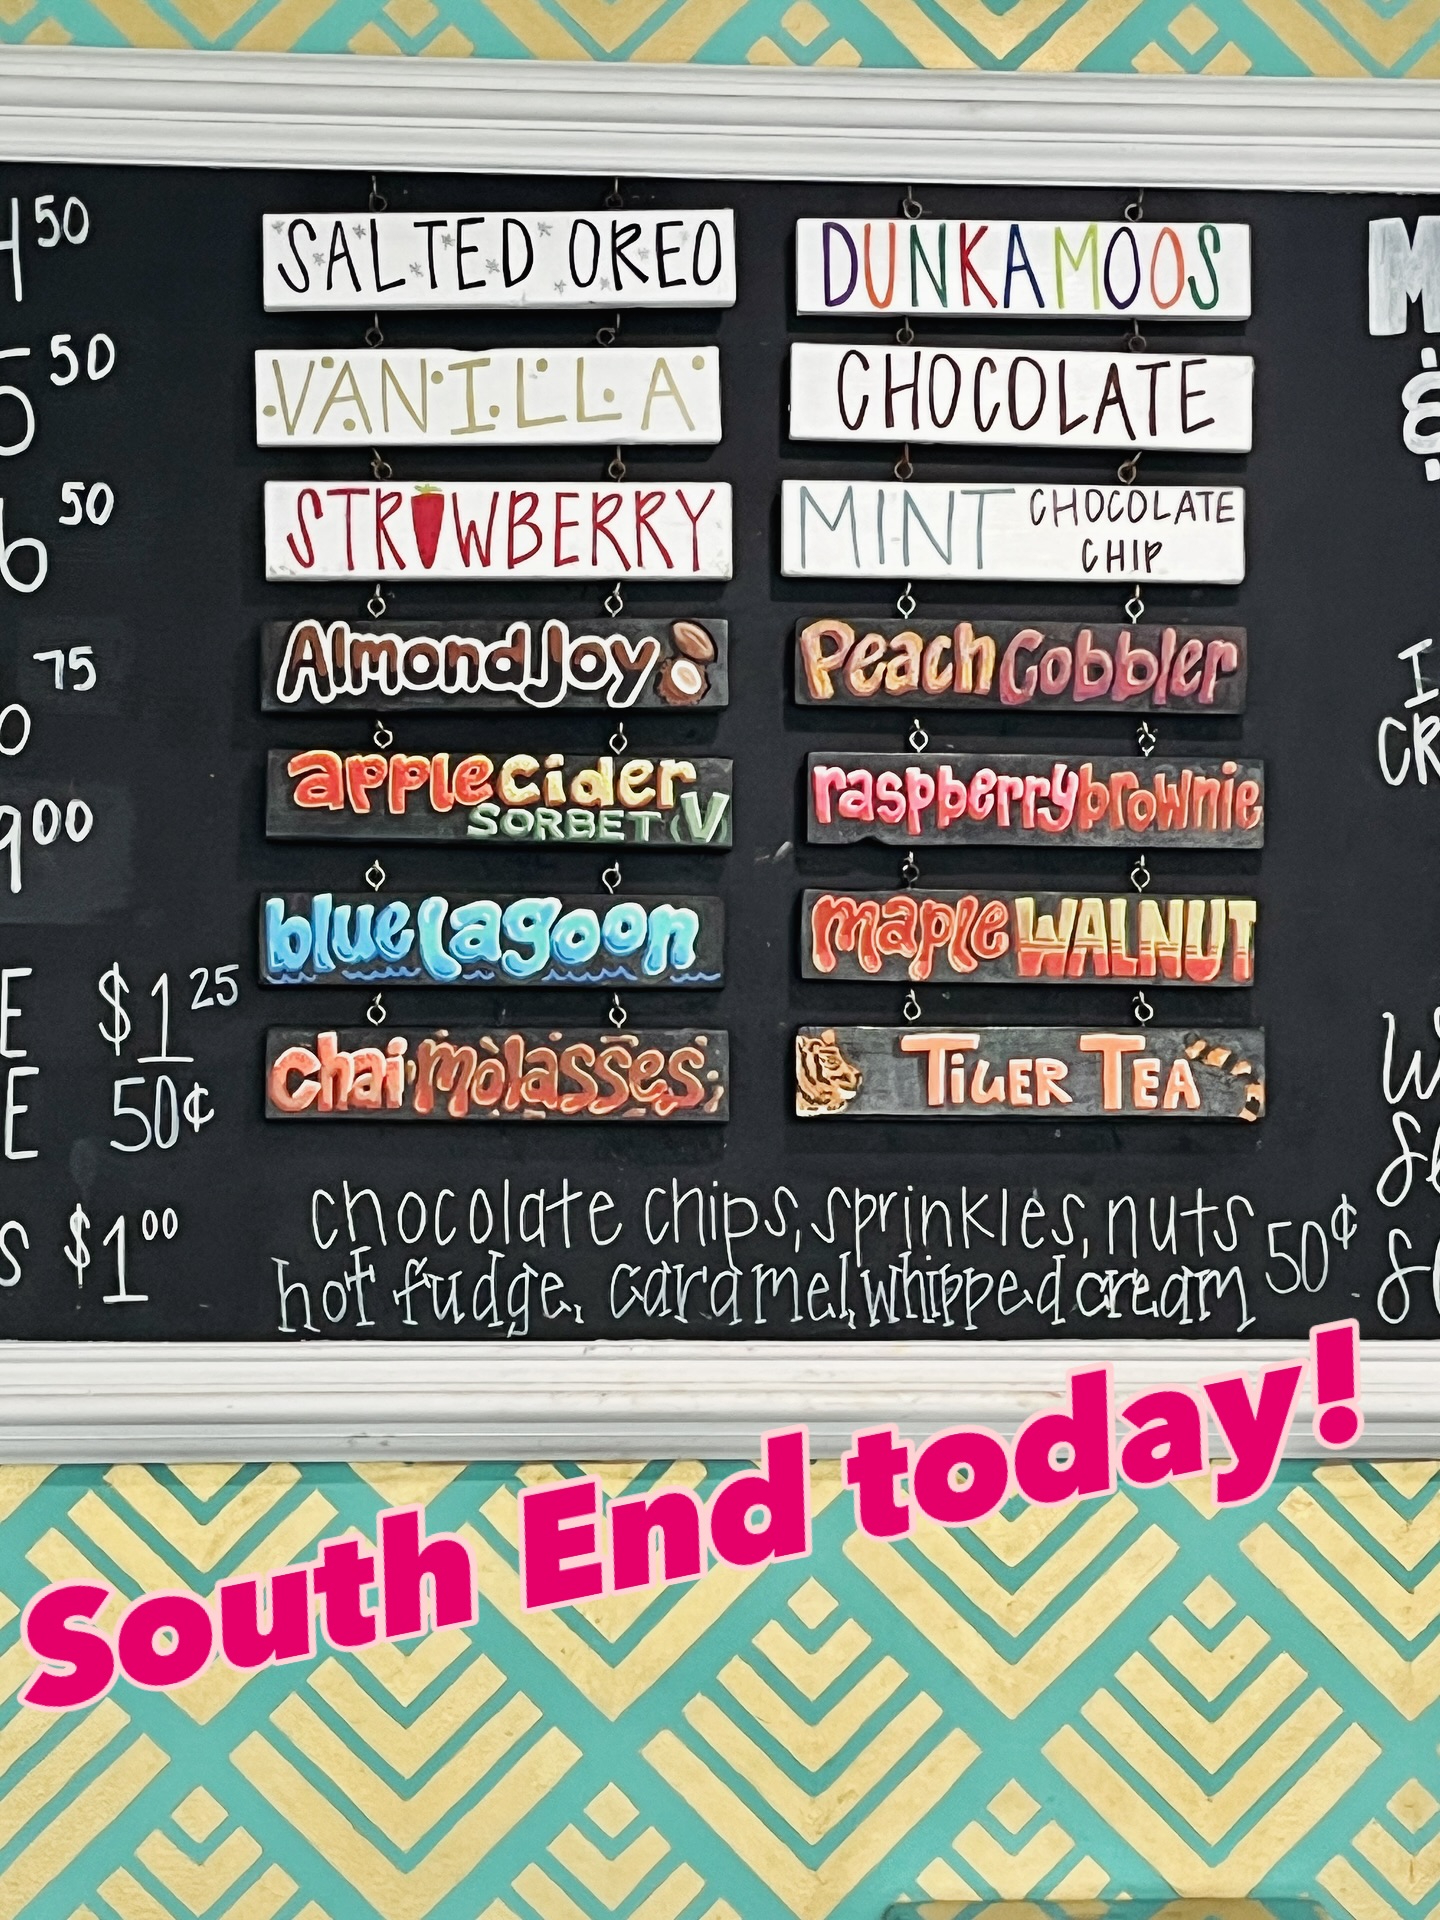 50
50
50
75
9⁰⁰
$1²⁵
50¢
$1⁰⁰
SALTED OREO
VANILLA
STRWBERRY
Almond Joy
apple cider
SORBET (V)
blue lagoon
chai molasses
DUNKAMOOS
CHOCOLATE
MINT CHOCOLATE
CHIP
Peach Cobbler
raspberry brownie
maple WALNUT
TIGER TEA
chocolate chips, sprinkles, nuts
hot fudge, caramel, whipped cream 50¢
M
&
I
CR
South End today!